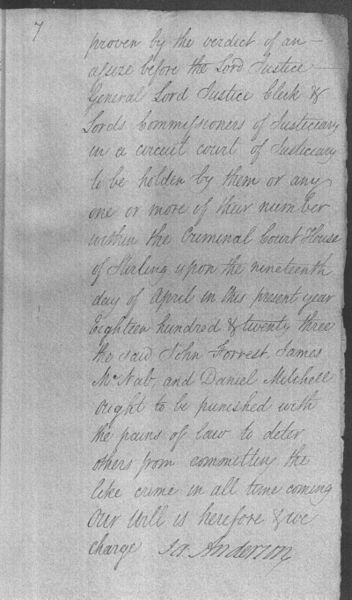 7
proven by the verdict of an
assize before the Lord Justice
General Lord Justice Clerk &
Lords Commissioners of Justiciary
in a circuit court of Justiciary
to be holden by them or any
one or more of their number
within the Criminal Court House
of Stirling upon the nineteenth
day of April in this present year
Eighteen hundred & twenty three
the said John Forrest James
McNab, and Daniel Mitchell
ought to be punished with
the pains of law to deter
others from committen the
like crime in all time coming
Our Will is herefore & we
charge Ja. Anderson